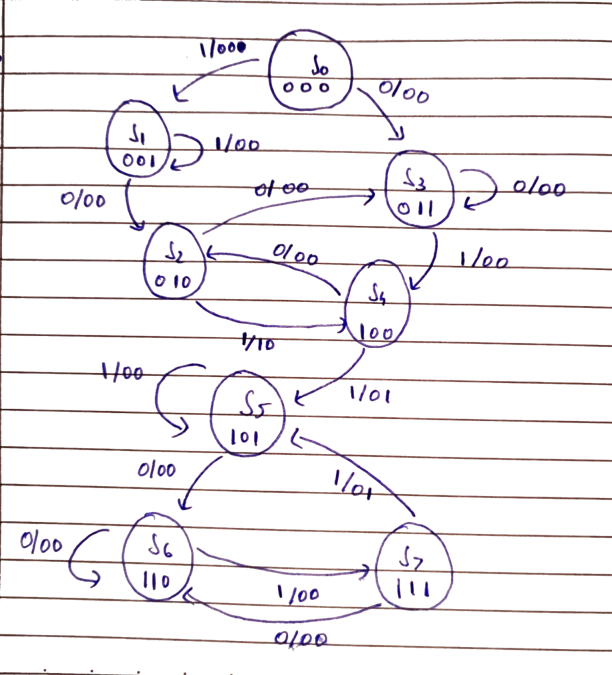 1/000
S0
000
0/00
S1
001
1/00
S3
011
0/00
0/00
0/00
S2
010
0/00
1/00
S4
100
1/10
1/00
1/01
S5
101
0/00
1/01
0/00
S6
110
S7
111
1/00
0/00